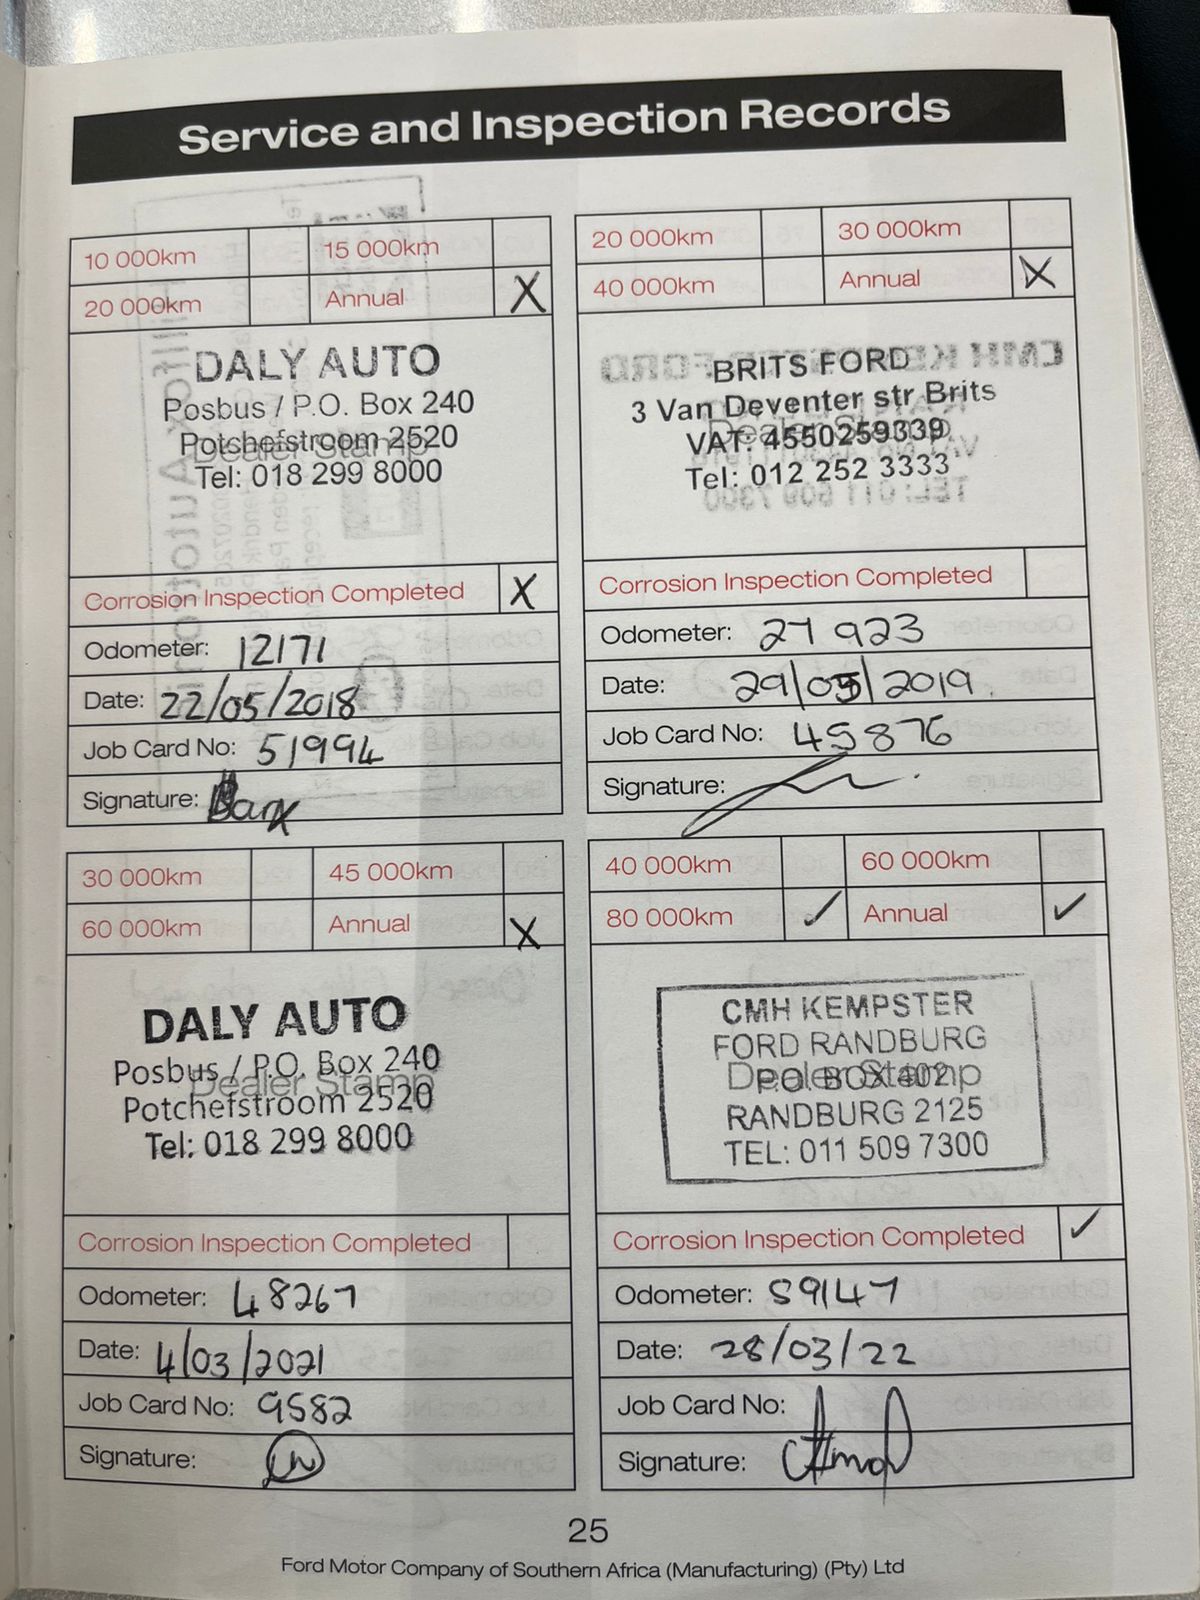 Service and Inspection Records
10 000km 15 000km
20 000km Annual X
DALY AUTO
Posbus / P.O. Box 240
Potchefstroom 2520
Dealer Stamp
Tel: 018 299 8000
Corrosion Inspection Completed X
Odometer: 12171
Date: 22/05/2018
Job Card No: 51994
Signature:
20 000km 30 000km
40 000km Annual X
BRITS FORD
3 Van Deventer str Brits
Dealer Stamp
VAT: 4550259339
Tel: 012 252 3333
Corrosion Inspection Completed
Odometer: 27 923
Date: 29/05/2019
Job Card No: 45876
Signature:
30 000km 45 000km
60 000km Annual X
DALY AUTO
Posbus / P.O. Box 240
Dealer Stamp
Potchefstroom 2520
Tel: 018 299 8000
Corrosion Inspection Completed
Odometer: 48267
Date: 4/03/2021
Job Card No: 9582
Signature:
40 000km 60 000km
80 000km ✓ Annual ✓
CMH KEMPSTER
FORD RANDBURG
Dealer Stamp
P.O. BOX 402
RANDBURG 2125
TEL: 011 509 7300
Corrosion Inspection Completed ✓
Odometer: 59147
Date: 28/03/22
Job Card No:
Signature:
25
Ford Motor Company of Southern Africa (Manufacturing) (Pty) Ltd